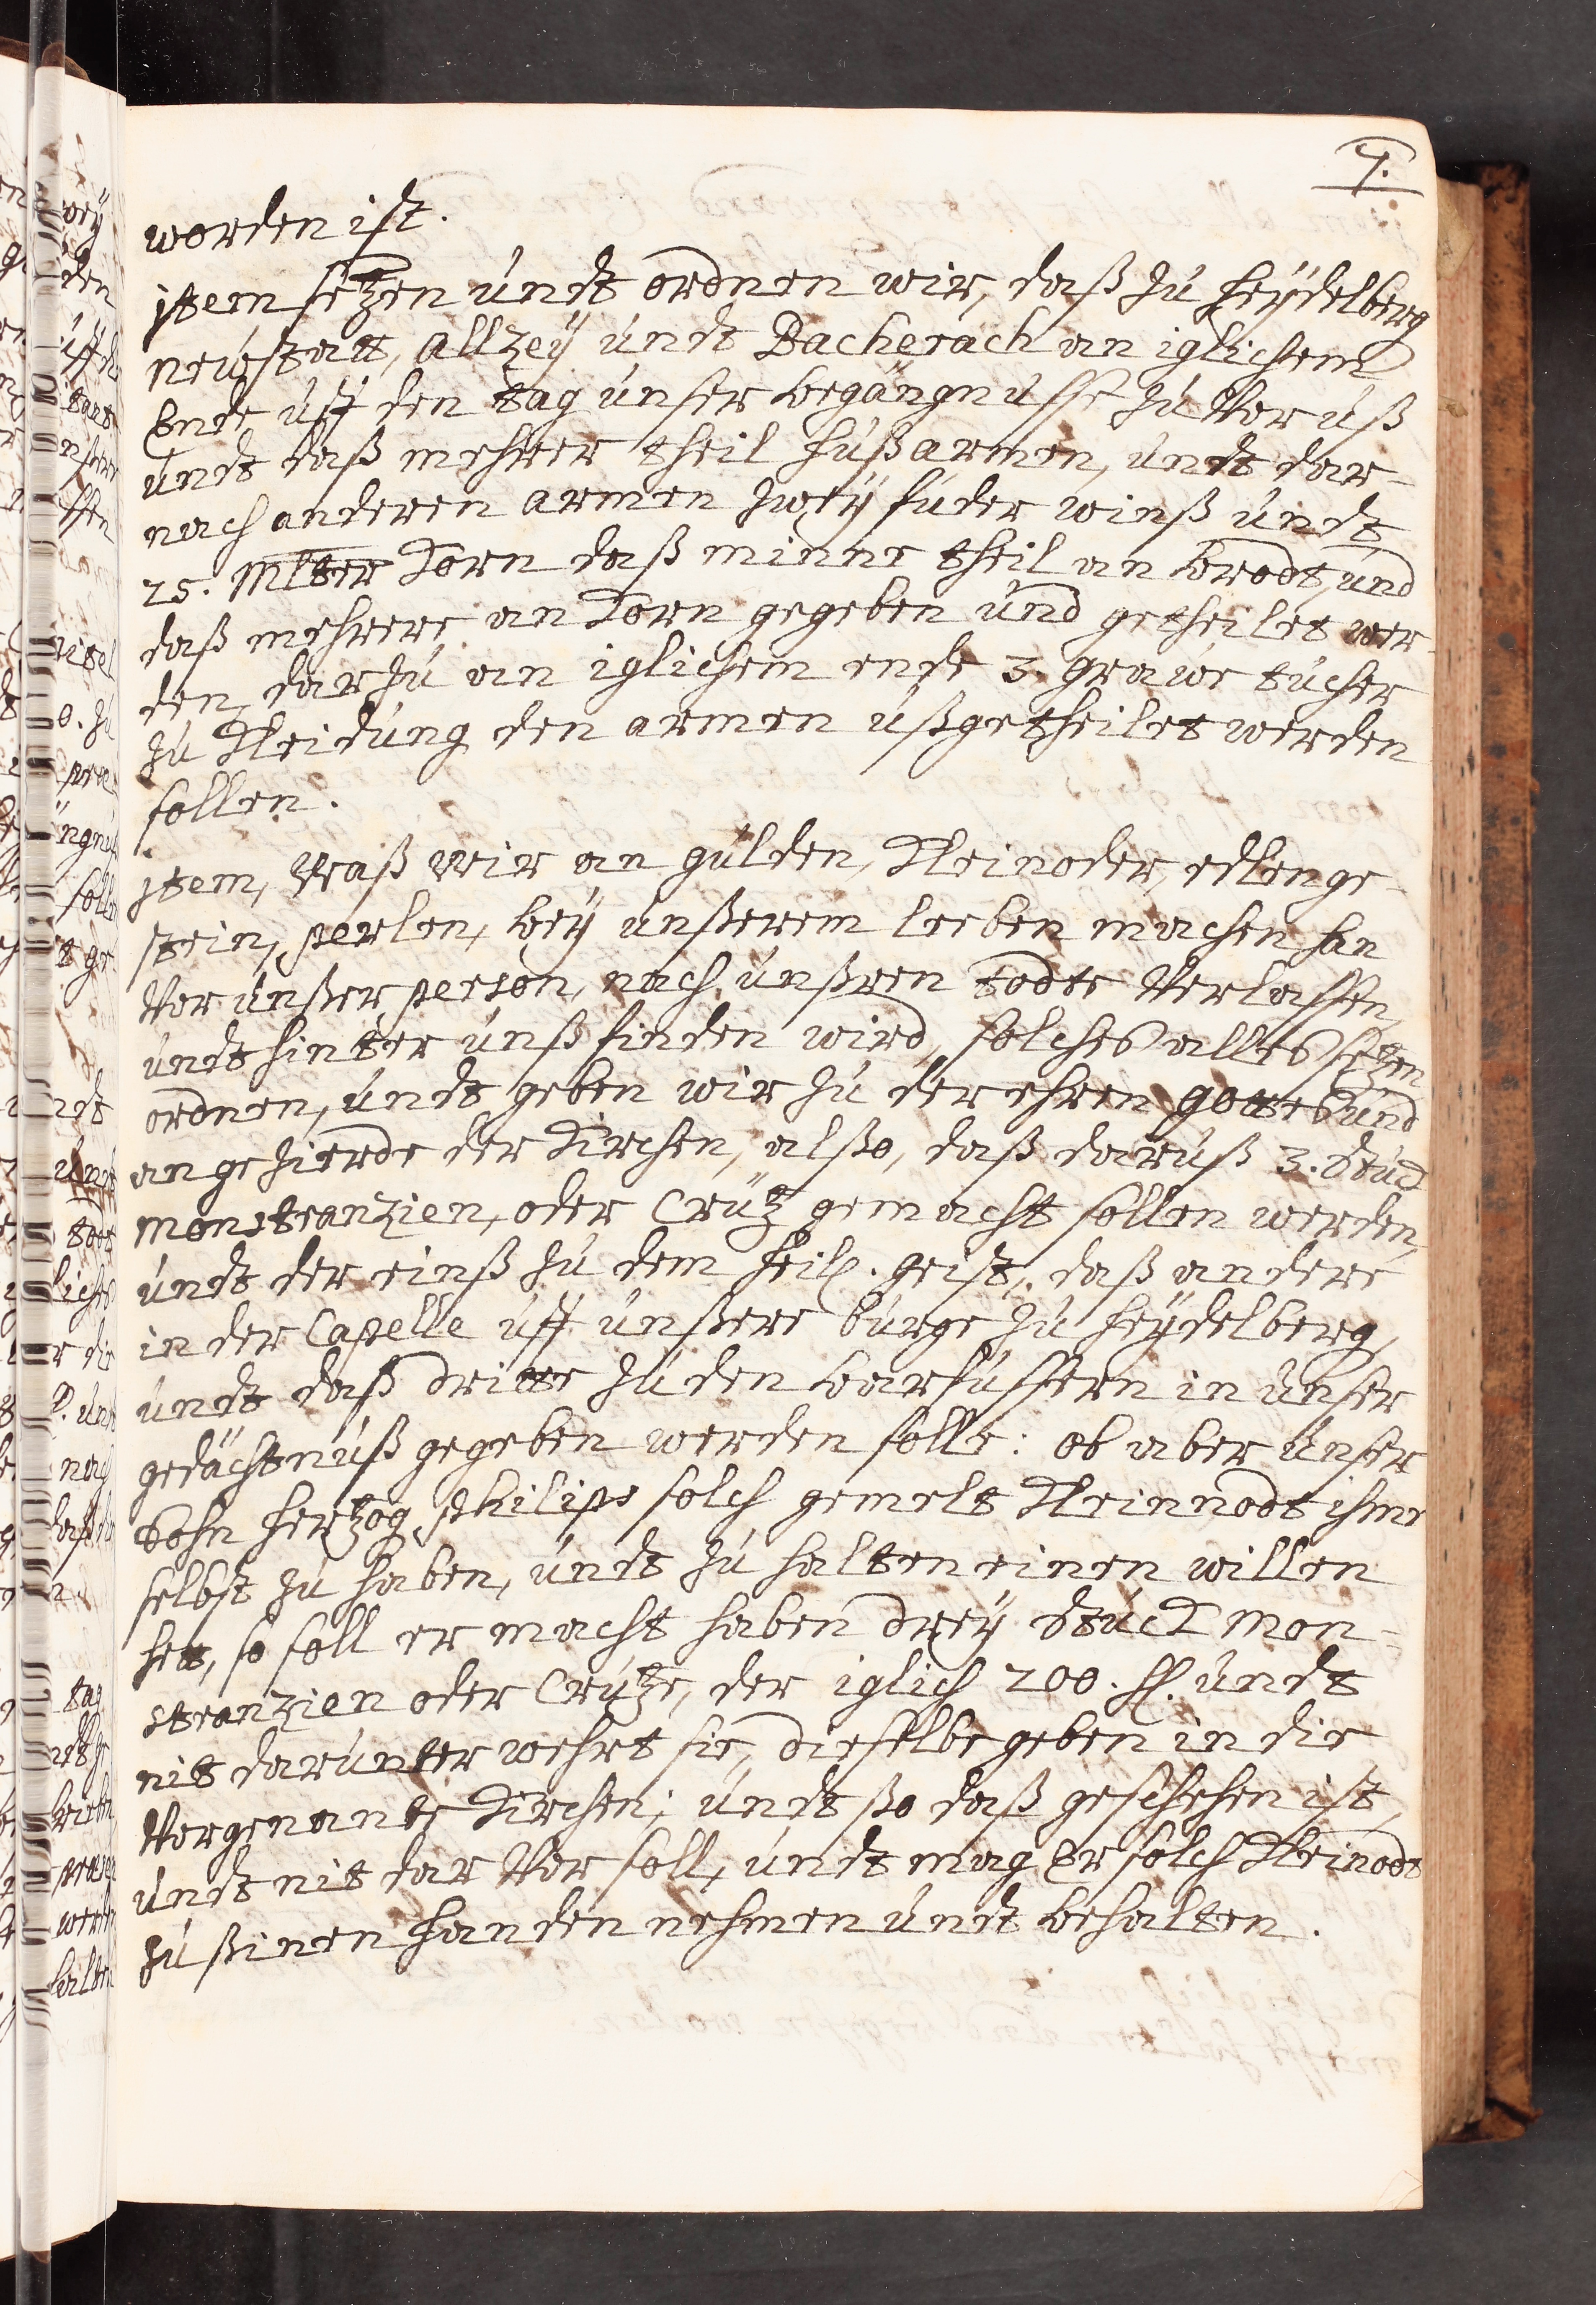 7.
worden ist.
jtem setzen undt ordnen wir, daß zu heÿdelberg
neustatt, Allzeÿ undt Bacherach an iglichem
Ende uff den tag unser begängnusse zu Vor uß
undt daß mehrer theil hußarmen, undt dar-
nach anderen armen zweÿ fuder winß undt
25. Mltter Korn daß minne theil an brodt, und
daß mehrere an Korn gegeben und getheilet wer-
den, darzu an iglichem ende 3. grawe tücher
zu Kleidung den armen ußgetheilet werden
sollen.
jtem, Waß Wir an gülden, Kleinoder, edlenge-
stein, perlen, beÿ unßerem leeben machen han
Vor unßer person, nach unßren todte Verlassen,
undt hinter unß finden wird, solches alles setzen
ordnen, undt geben wir zu der ehren gottes und
an gezierde der Kirchen, alßo, daß daruß 3. Stuck
monstranzien, oder Crütz gemacht sollen werden,
undt der einß zu dem heil. geist, daß andere
in der Capelle uff unßere burge zu heÿdelberg,
undt daß dritte zu den barfüssern in unser
gedächtnuß gegeben werden solle: ob aber unser
Sohn hertzog philips solch gemelt Kleinnodt ihme
selbst zu haben, undt zu halten einen willen
hett, so soll er macht haben dreÿ Stuck mon-
stranzien oder Crütze, der iglich 200. fl. undt
nit darunter wehrt sie, dieselbe geben in die
Vorgenante Kirchen; undt ßo daß geschehen ist,
undt nit dar Vor soll, undt mag Er solch Kleinodt
zu ßinen handen nehmen undt behalten.